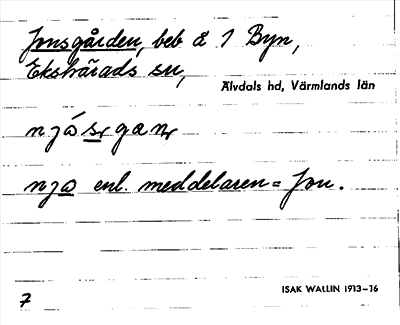 Jonsgården, beb å 1 Byn,
Ekshärads sn,
Älvdals hd, Värmlands län
njo enl. meddelaren = Jon.
ISAK WALLIN 1913-16
7